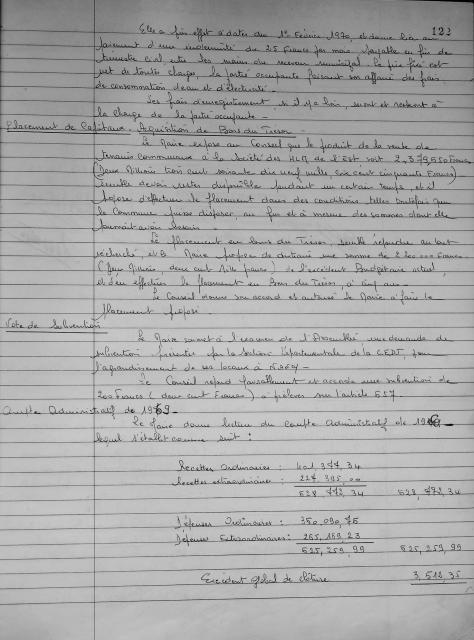 122
Elle a pris effet à dater du 1er Février 1970, et donne lieu au
paiement d'une indemnité de 25 Francs par mois payable en fin de
trimestre civil, entre les mains du receveur municipal. Ce prix fixé est
net de toutes charges, la partie occupante faisant son affaire des frais
de consommation d'eau et d'électricité.
Les frais d'enregistrement, s'il y a lieu, sont et restent à
la charge de la partie occupante.
Placement de Capitaux - Acquisition de Bons du Trésor -
Le Maire expose au Conseil que le produit de la vente de
terrains communaux à la Société des HLM de l'Est soit 2,379,650 Francs
(Deux Millions trois cent soixante dix neuf mille, six cent cinquante Francs)
semble devoir rester disponible pendant un certain temps, et il
propose d'effectuer le placement dans des conditions telles toutefois que
la Commune puisse disposer, au fur et à mesure des sommes dont elle
pourrait avoir besoin
Le placement en bons du Trésor, semble répondre au but
recherché, et le Maire propose de distraire une somme de 2 200 000 Francs
(Deux Millions, deux cent mille francs) de l'excédent Budgétaire actuel,
et d'en effectuer le placement en Bons du Trésor, à cinq ans -
Le Conseil donne son accord et autorise le Maire à faire le
placement proposé
Vote de Subvention
Le Maire soumet à l'examen de l'Assemblée une demande de
subvention présentée par la Section Départementale de la C.F.D.T, pour
l'agrandissement de ses locaux à
Le Conseil répond favorablement et accorde une subvention de
200 Francs (deux cent Francs), à prélever sur l'article 657.
Compte Administratif de 1969 -
Le Maire donne lecture du Compte Administratif de 1969
lequel s'établit comme suit :
Recettes Ordinaires : 401,377,34
Recettes extraordinaires : 227,395,00
628,772,34 628,772,34
Dépenses Ordinaires : 360,090,76
Dépenses Extraordinaires : 265,169,23
625,259,99 625,259,99
Excédent global de clôture 3,512,35